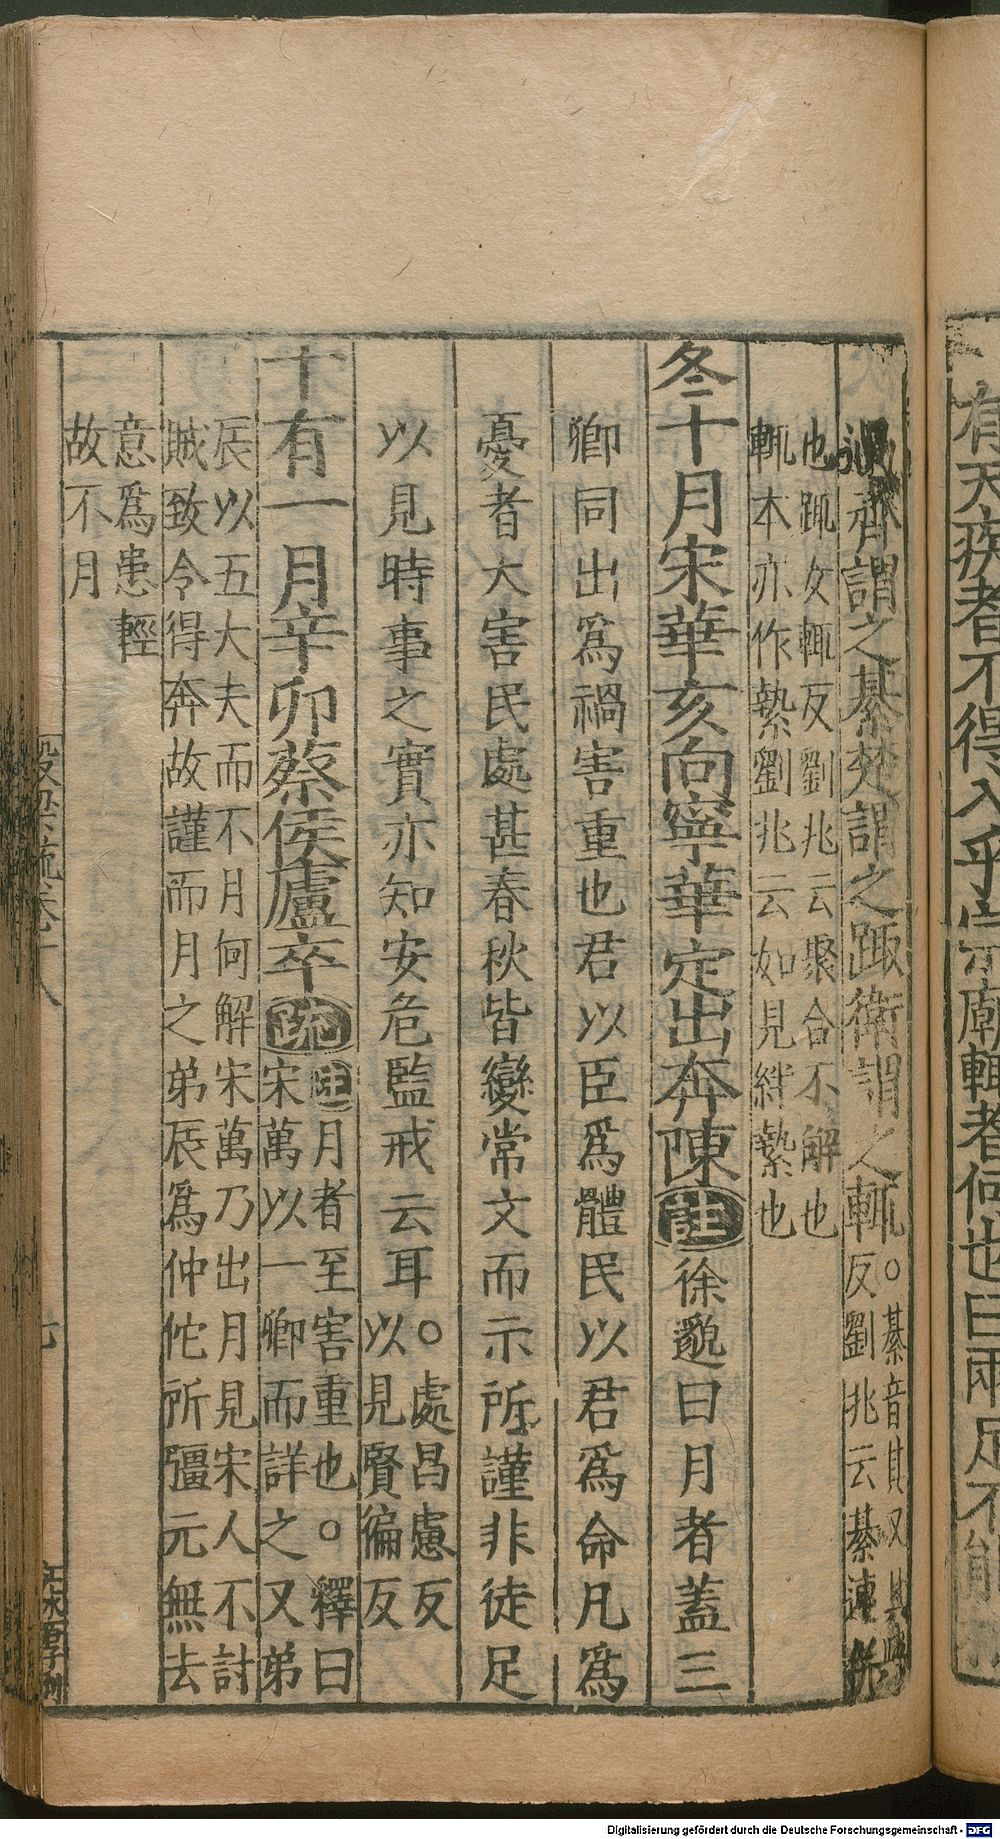 有天疾者不得入乎宗廟輒者何也曰兩足不能
齊謂之綦楚謂之踙衛謂之輒。綦音其又其
反劉兆云綦連併
也踙女輒反劉兆云聚合不解也
輒本亦作縶劉兆云如見絆縶也
冬十月宋華亥向寧華定出奔陳註徐邈曰月者蓋三
卿同出爲禍害重也君以臣爲體民以君爲命凡爲
憂者大害民處甚春秋皆變常文而示所謹非徒足
以見時事之實亦知安危監戒云耳。處昌慮反
以見賢徧反
十有一月辛卯蔡侯廬卒疏註月者至害重也。釋曰
宋萬以一卿而詳之又弟
辰以五大夫而不月何解宋萬乃出月見宋人不討
賊致令得奔故謹而月之弟辰爲仲佗所彊元無去
意爲患輕
故不月
穀梁疏卷十八
七
Digitalisierung gefördert durch die Deutsche Forschungsgemeinschaft - DFG